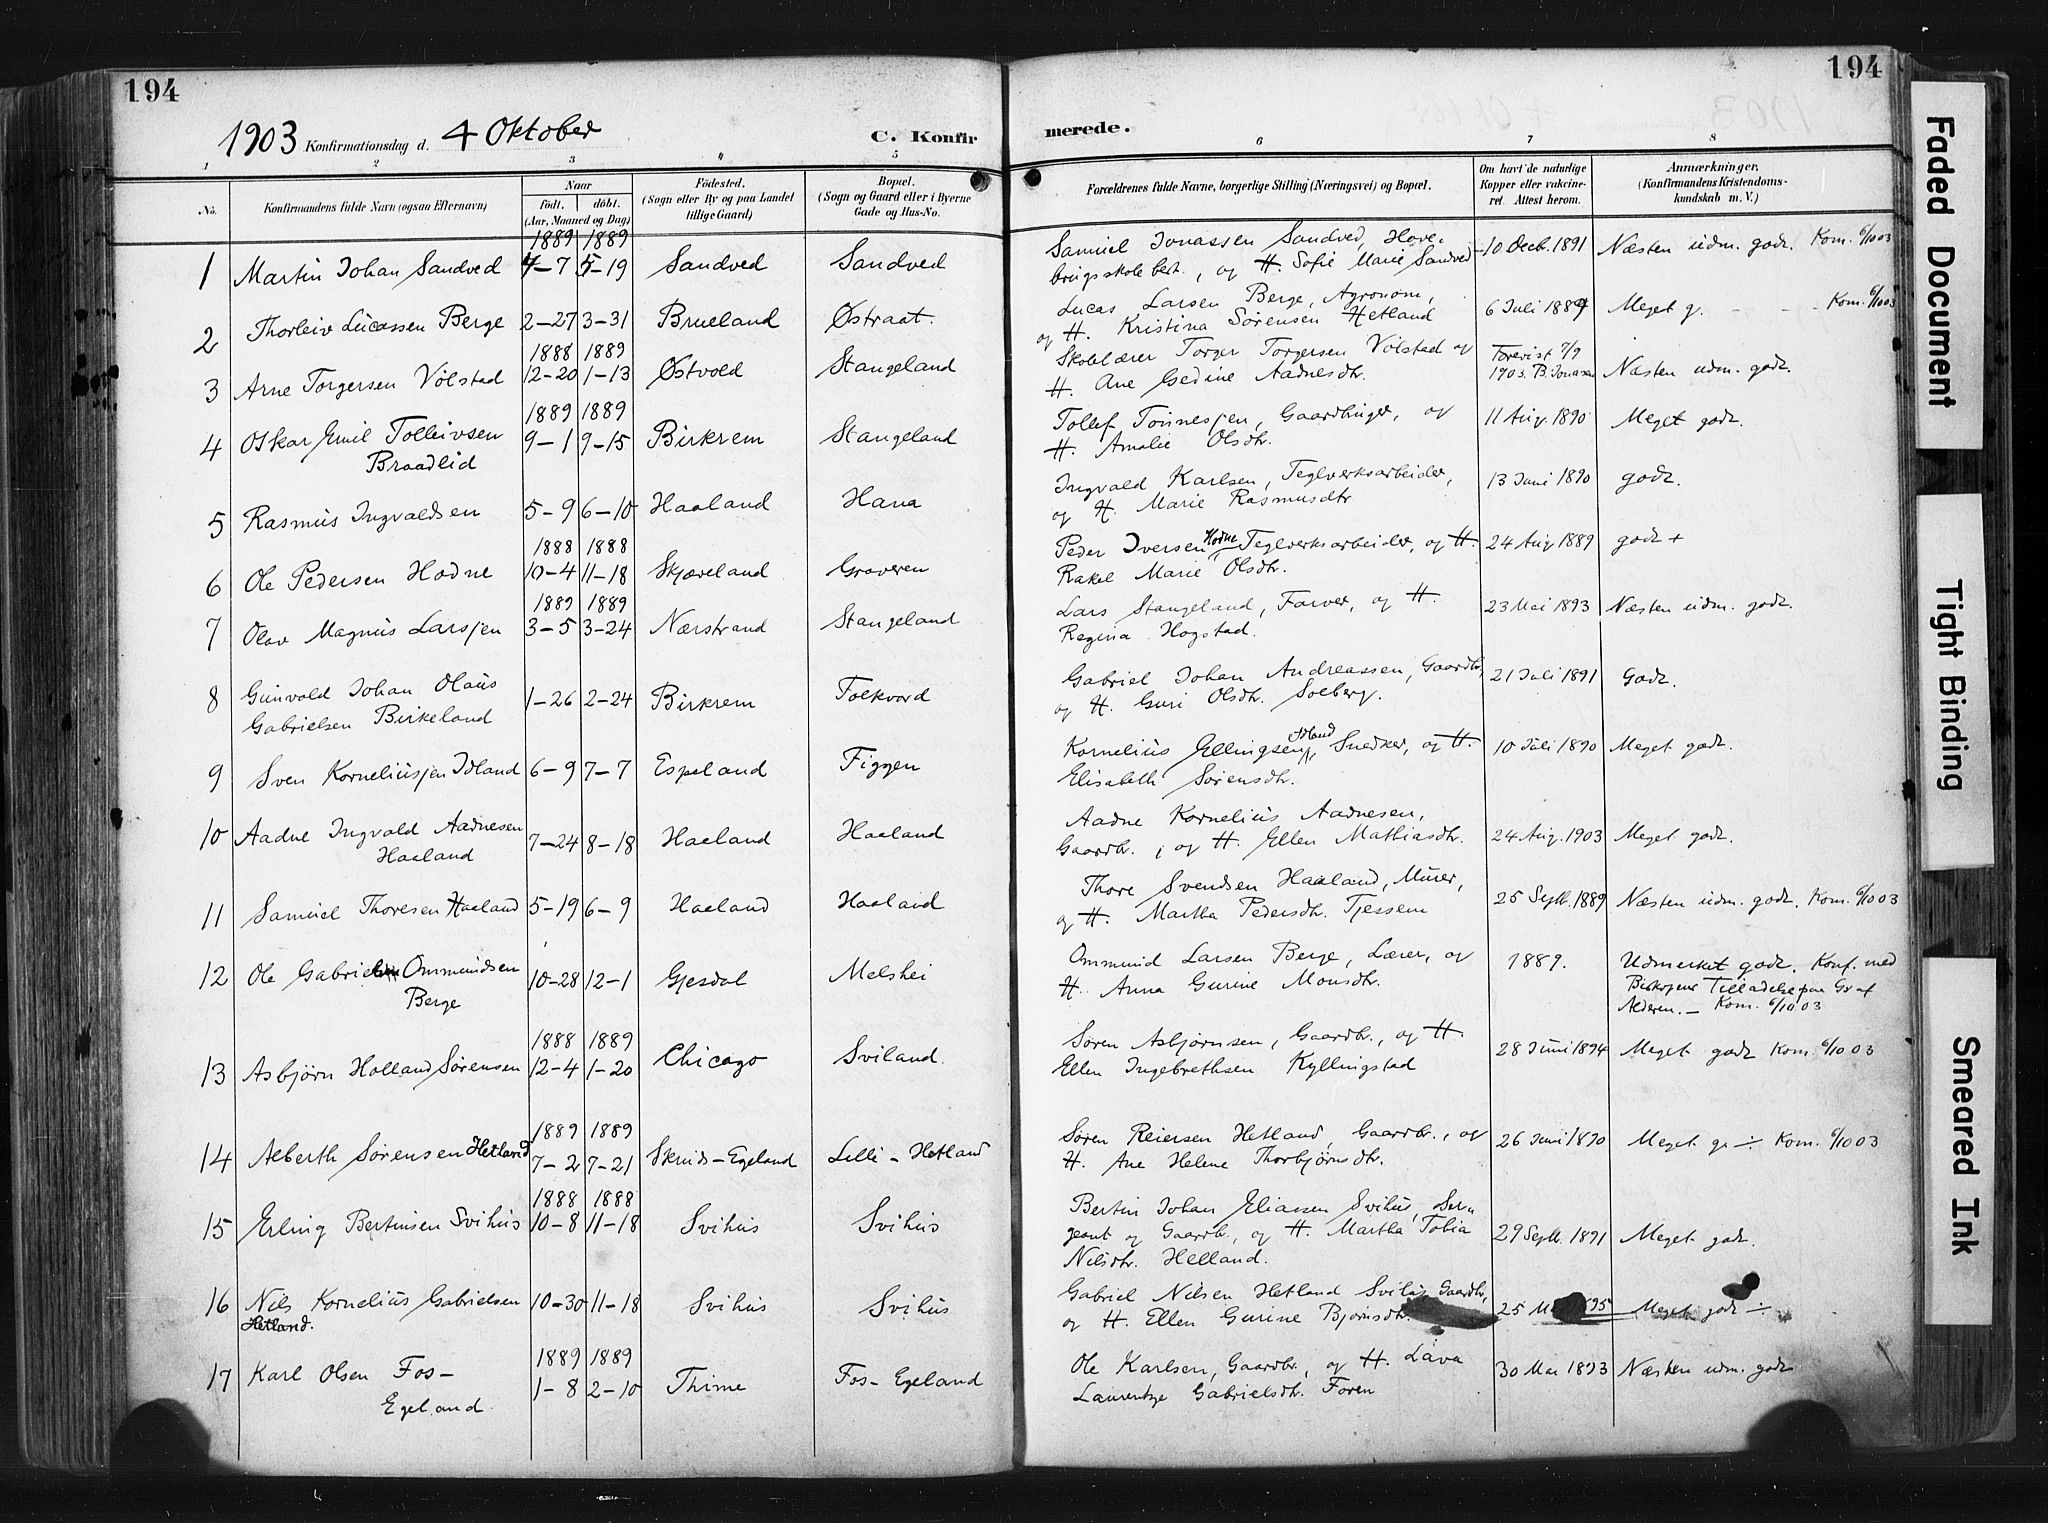 194
194
1903 Konfirmationsdag d. 4 Oktober C. Konfir
merede.
1 2 3 4 5 6 7 8
No. Konfirmandens fulde Navn (ogsaa Efternavn) Naar født. døbt. (Aar, Maaned og Dag) Fødested. (Sogn eller By og paa Landet tillige Gaard) Bopæl. (Sogn og Gaard eller i Byerne Gade og Hus-No. Forældrenes fulde Navne, borgerlige Stilling (Næringsvei) og Bopæl. Om havt de naturlige Kopper eller vakcineret. Attest herom. Anmærkninger. (Konfirmandens Kristendomskundskab m. V.)
1889 1889
1 Martin Johan Sandved 4-7 5-19 Sandved Sandved Samuel Jonassen Sandved, Have-
brugsskolebest., og H. Sofie Marie Sandved 10 Decb. 1891 Næsten udm. godt. Kom. 6/10 03
2 Thorleiv Lucassen Berge 2-27 3-31 Brueland Østraat. Lucas Larsen Berge, Agronom,
og H. Kristina Sørensen Hetland 6 Juli 1889 Meget g. - - Kom. 6/10 03
1888 1889
3 Arne Torgersen Vølstad 12-20 1-13 Østvold Stangeland Skolelærer Torger Torgersen Vølstad og
H. Ane Gedine Aadnesdtr. Forevist 7/9
1903. B. Jonasen Næsten udm. godt.
1889 1889
4 Oskar Emil Tolleivsen
Braadlid 9-1 9-15 Birkrem Stangeland Tollef Tønnesjen, Gaardbruger, og
H. Amalie Olsdtr. 11 Aug. 1890 Meget godt.
5 Rasmus Ingvaldsen 5-9 6-10 Haaland Hana Ingvald Karlsen, Teglverksarbeider,
og H. Marie Rasmusdtr 13 Juni 1890 godt.
1888 1888
6 Ole Pedersen Hodne 10-4 11-18 Skjæveland Graveren Peder Iversen Hodne Teglverksarbeider, og H.
Rakel Marie Olsdtr. 24 Aug 1889 godt +
1889 1889
7 Olav Magnus Larsjen 3-5 3-24 Nærstrand Stangeland Lars Stangeland, Farver, og H.
Regina Hogstad. 23 Mai 1893 Næsten udm. godt.
8 Gunvald Johan Olaus
Gabrielsen Birkeland 1-26 2-24 Birkrem Folkvord Gabriel Johan Andreassen, Gaardbr,
og H. Guri Olsdtr. Solberg. 21 Juli 1891 Godt.
9 Sven Korneliusjen Idland 6-9 7-7 Espeland Figgen Kornelius Ellingsen Idland Snedker, og H.
Elisabeth Sørensdtr. 10 Juli 1890 Meget godt.
10 Aadne Ingvald Aadnesen
Haaland 7-24 8-18 Haaland Haaland Aadne Kornelius Aadnesen,
Gaardbr., og H. Ellen Mathiasdtr. 24 Aug. 1903 Meget godt.
11 Samuel Thoresen Haaland 5-19 6-9 Haaland Haaland Thore Svendsen Haaland, Murer,
og H. Martha Pedersdtr. Tjessem 25 Septb. 1889 Næsten udm. godt. Kom. 6/10 03
12 Ole Gabriel Ommundsen
Berge 10-28 12-1 Gjesdal Melshei Ommund Larsen Berge, Lærer, og
H. Anna Gurine Monsdtr. 1889. Udmerket godt. Konf. med
Biskopens Tilladelse paa Gr af
Alderen. - Kom. 6/10 03
1888 1889
13 Asbjørn Holland Sørensen 12-4 1-20 Chicago Sviland. Søren Asbjørnsen, Gaardbr., og H.
Ellen Ingebrethsen Kyllingstad 28 Juni 1894 Meget godt Kom. 6/10 03
1889 1889
14 Alberth Sørensen Hetland 7-2 7-21 Skuds-Egeland Lille-Hetland Søren Reiersen Hetland, Gaardbr., og
H. Ane Helene Thorbjørnsdtr. 26 Juni 1890 Meget g. ÷ Kom. 6/10 03
1888 1888
15 Erling Bertinsen Svihus 10-8 11-18 Svihus Svihus Bertin Johan Eliassen Svihus, Ser-
geant og Gaardbr., og H. Martha Tobia
Nilsdtr. Helland. 29 Septb. 1891 Meget godt.
16 Nils Kornelius Gabrielsen
Hetland. 10-30 11-18 Svihus Svihus Gabriel Nilsen Hetland Svihus Gaardbr,
og H. Ellen Gurine Bjørnsdtr. 25 1895 Meget godt ÷
1889 1889
17 Karl Olsen Fos-
Egeland. 1-8 2-10 Thime Fos-Egeland Ole Karlsen, Gaardbr., og H. Lava
Laurentze Gabrielsdtr. Foren 30 Mai 1893 Næsten udm. godt
Faded Document
Tight Binding
Smeared Ink